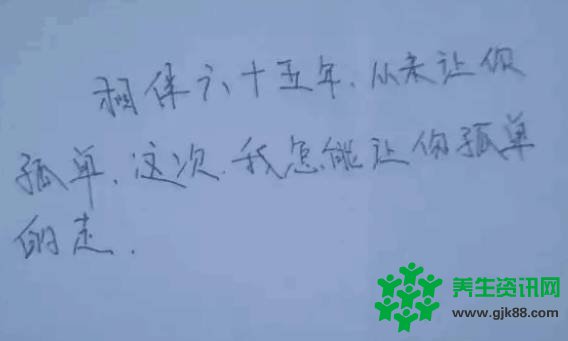 相伴六十五年.从未让你
孤单.这次.我怎能让你孤单
的走.
养生资讯网
www.gjk88.com